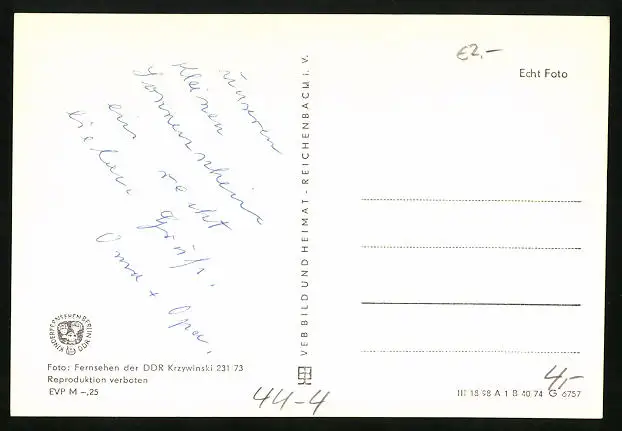 unseren
kleinen
Sonnenschein
ein recht
lieben Gruß.
Oma + Opa.
KINDERFERNSEHEN BERLIN DDR
Foto: Fernsehen der DDR Krzywinski 231 73
Reproduktion verboten
EVP M –,25
VEB BILD UND HEIMAT - REICHENBACH i. V.
44-4
€2,–
Echt Foto
4,-
III 18 98 A 1 B 40 74 G 6757